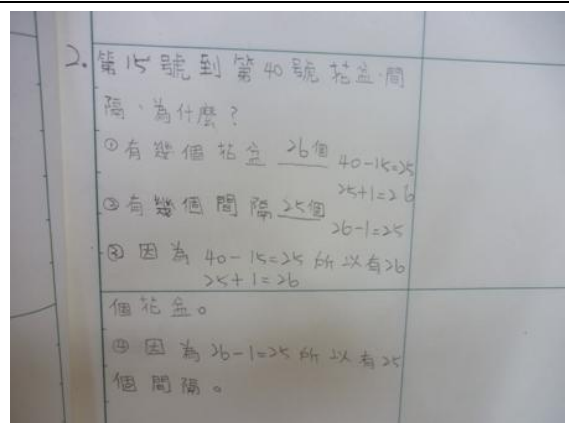 2. 第15號到第40號花盆、間
隔、為什麼?
①有幾個花盆 26個 40-15=25
25+1=26
②有幾個間隔 25個
26-1=25
③因為 40-15=25 所以有26
25+1=26
個花盆。
④因為26-1=25所以有25
個間隔。